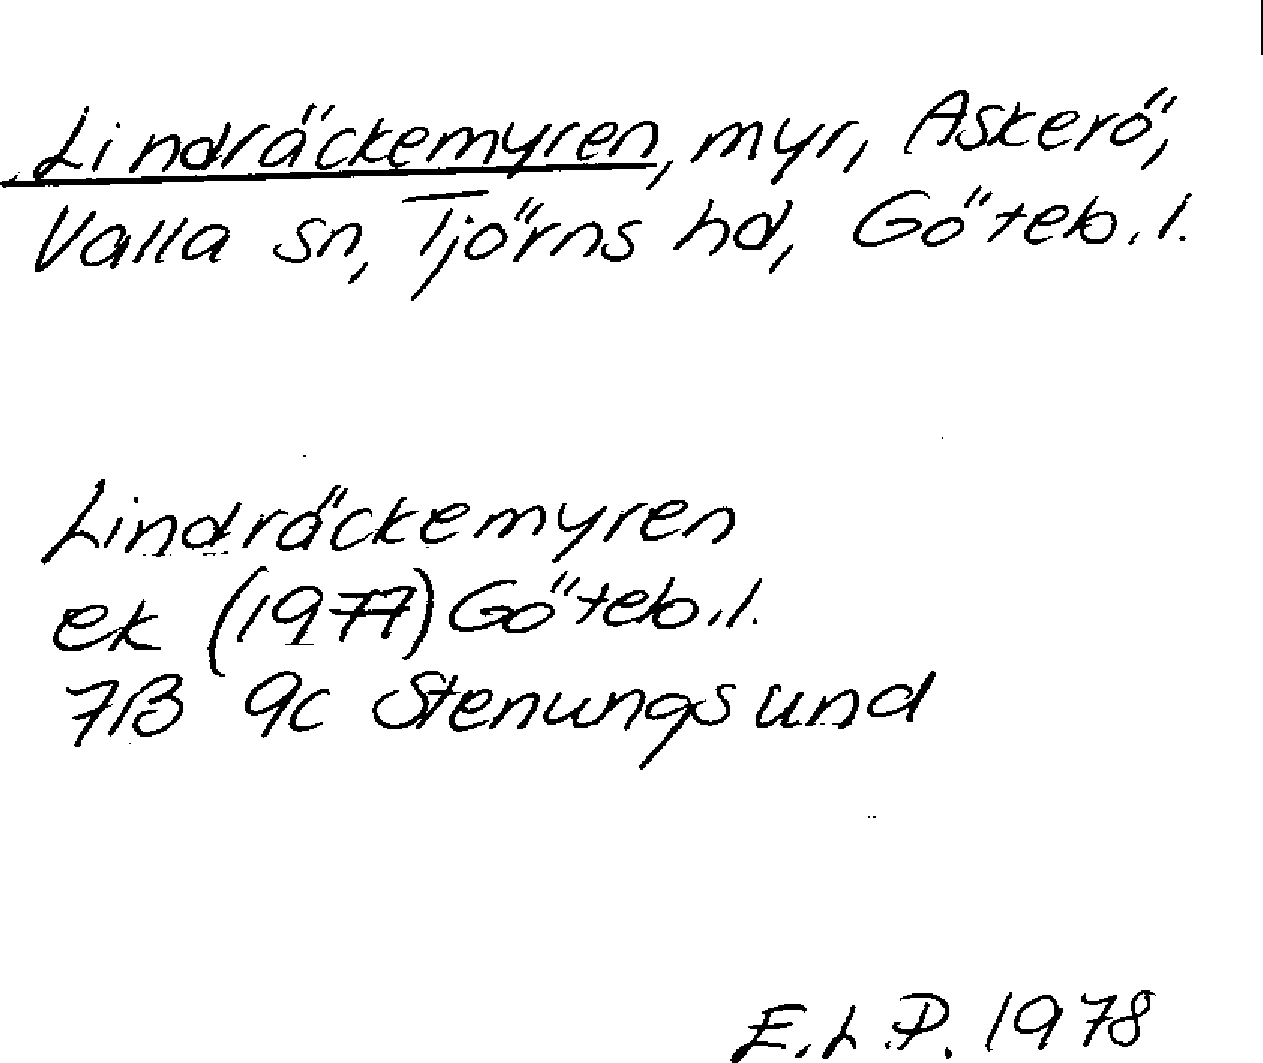 Lindräckemyren, myr, Askerö,
Valla sn, Tjörns hd, Göteb.l.
Lindräckemyren
ek (1977) Göteb.l.
7B 9c Stenungsund
E.L.P. 1978